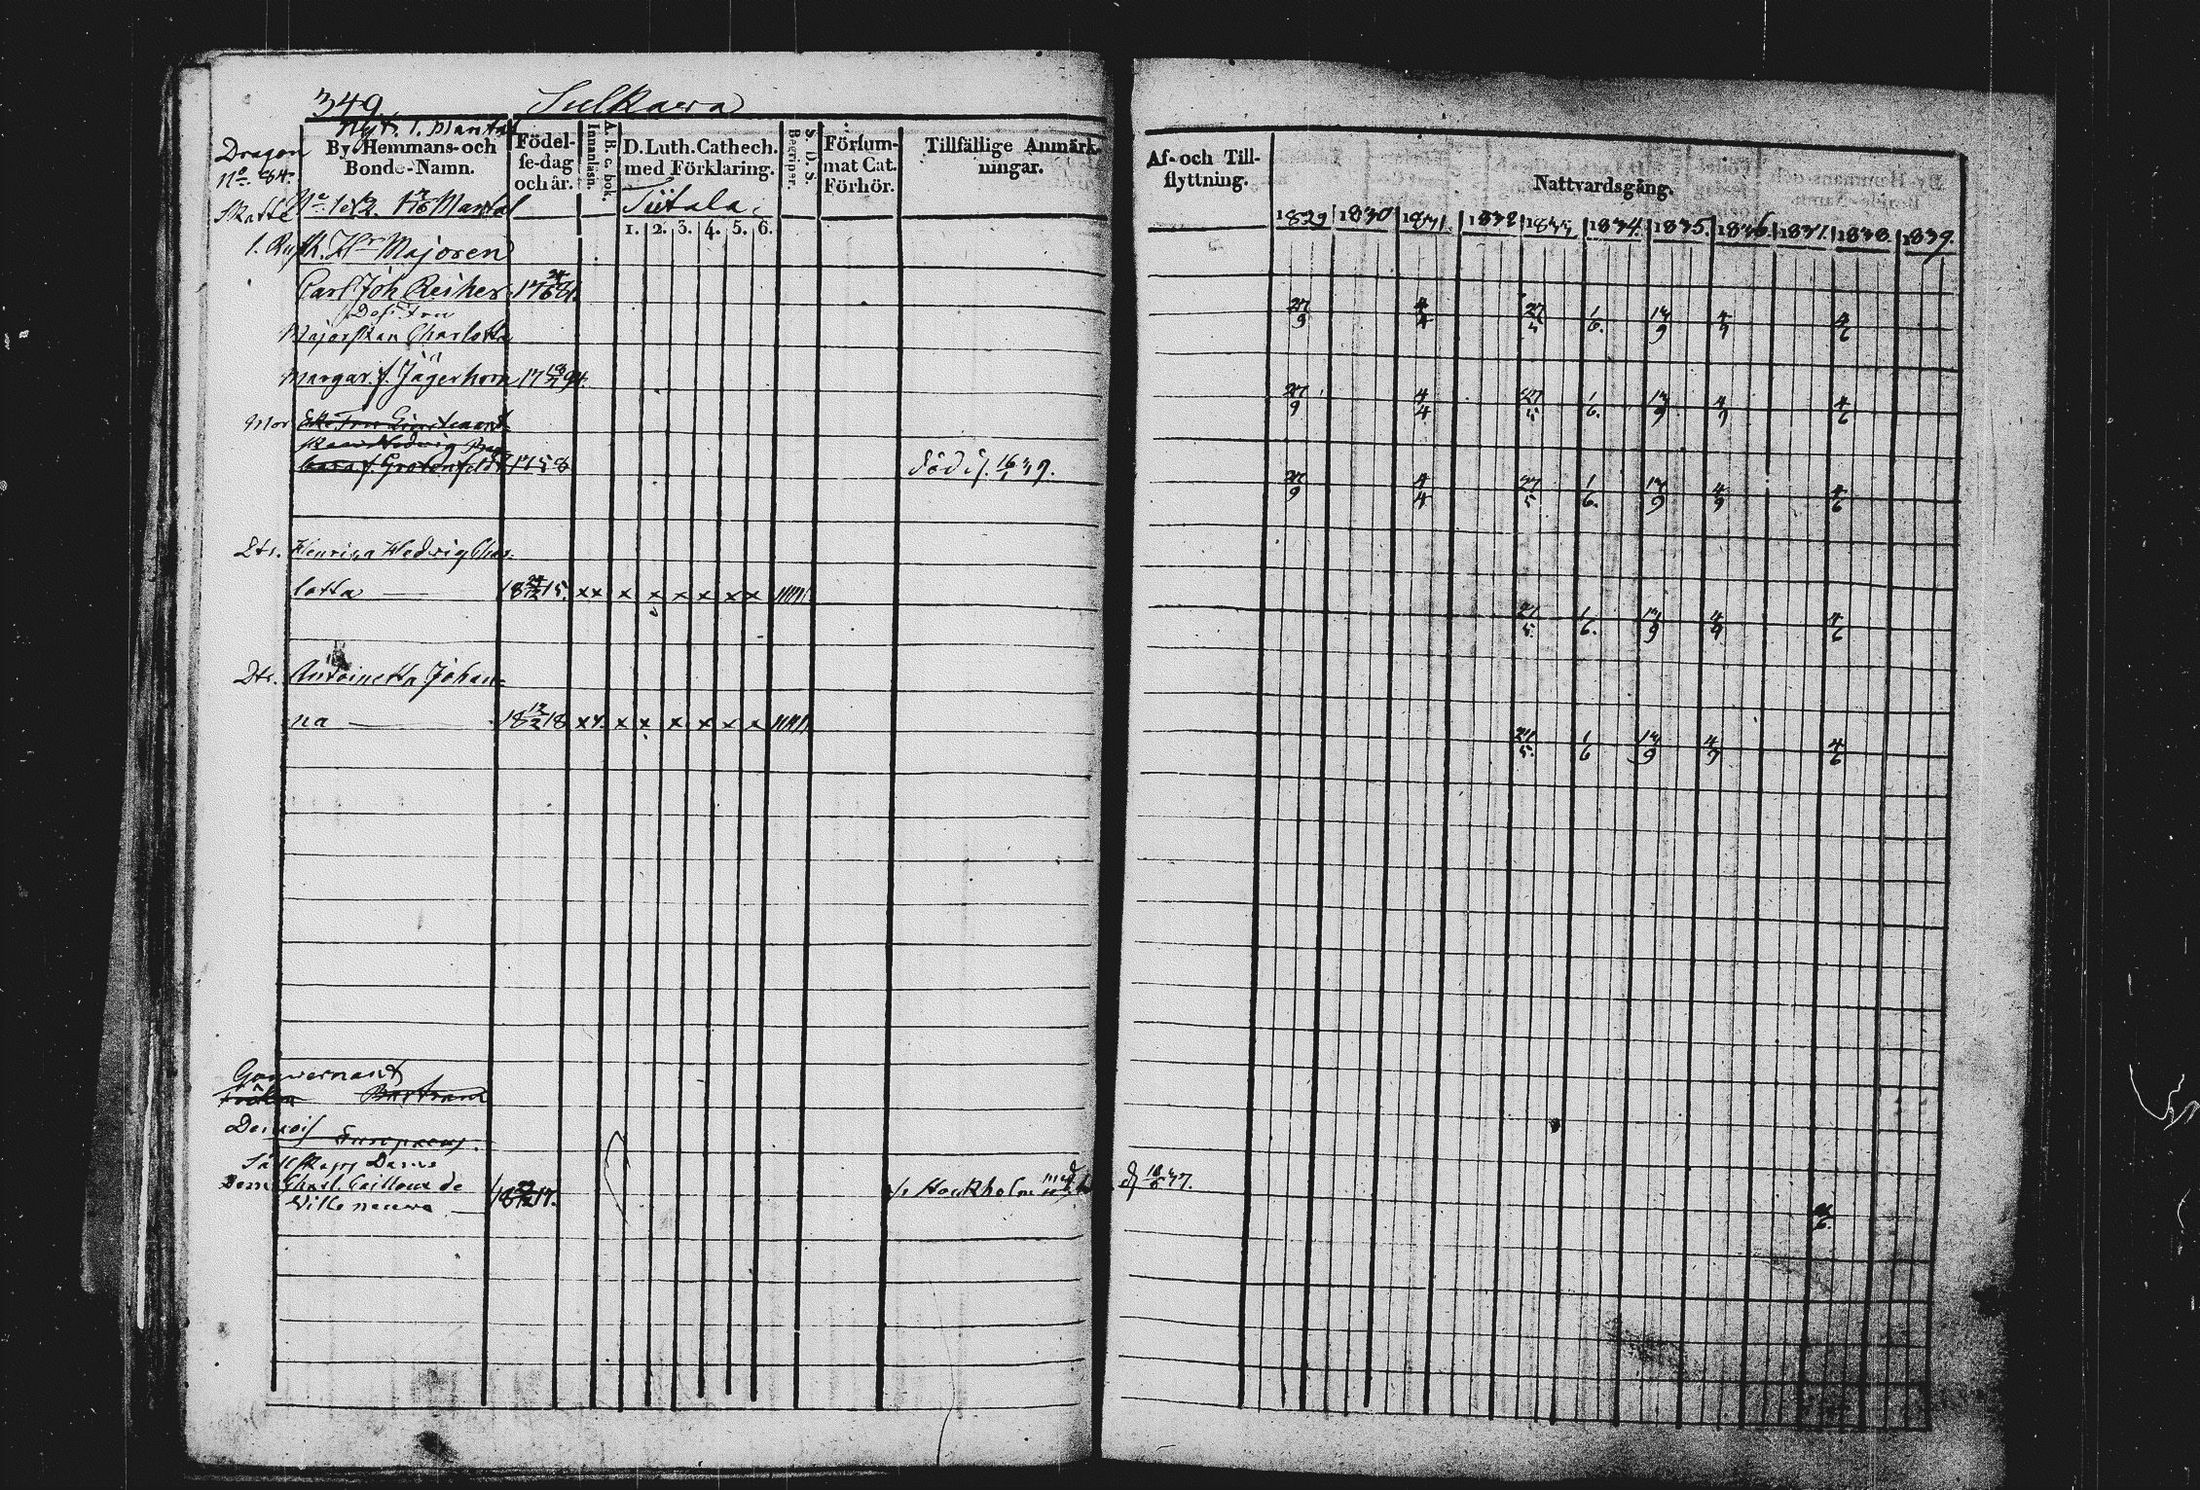 349. Sulkava
Nytt 1. Mantal
Dragon
No. 84.
By, Hemmans- och
Bonde-Namn.
Födel-
se-dag
och år.
A. B. c. bok.
Innanläsn.
D. Luth. Cathech.
med Förklaring.
S. D. S.
Begriper.
Försum-
mat Cat.
Förhör.
Tillfällige Anmärk-
ningar.
Skatte No. 1 Mantal
Tiitala.
1. 2. 3. 4. 5. 6.
1. Rusth. Hr Majoren
Carl Joh Reiher
Dess Fru
Majorskan Charlotta
Margar. f. Jägerhorn 17 94.
Mor Enke Fru
Hedwig
f. Grotenfelt 1758
död d. 16/1 39.
Dtr. Henrica Hedvig Char-
lotta 18 24/12 15. x x x x x x x x
Dtr. Antoinetta Johan-
na 18 12/2 18 x x x x x x x x
Gouvernant
Fröken Bartram
Demois Europaeus.
Sällskaps Dame
Dem. Charl. Cailloux de
Villeneuve
fr Stockholm
Af- och Till-
flyttning.
Nattvardsgång.
1829 1830 1831 1832 1833 1834. 1835. 1836. 1837. 1838. 1839.
27/9 4/4 27/5 1/6. 13/9 4/9 4/6
27/9 4/4 27/5 1/6. 13/9 4/9 4/6
27/9 4/4 27/5 1/6. 13/9 4/9 4/6
27/5. 1/6. 13/9 4/9 4/6
27/5. 1/6 13/9 4/9 4/6